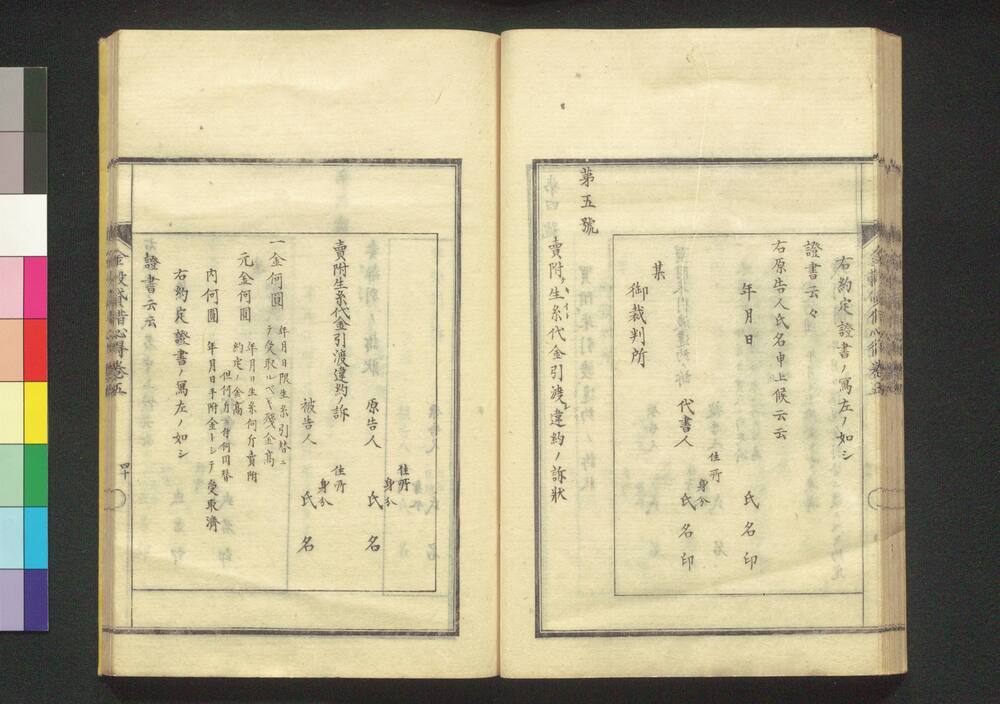 右約定證書ノ寫左ノ如シ
證書云々
右原告人氏名申上候云云
年月日 氏名印
住所
身分
代書人 氏名印
某
御裁判所
第五號
賣附生糸代金引渡違約ノ訴狀
賣附生糸代金引渡違約ノ訴
住所
身分
原告人 氏名
住所
身分
被告人 氏名
一金何圓 年月日限生糸引替ニ
テ受取ルベキ殘金高
元金何圓 年月日生糸何斤賣附
約定ノ金高
但何斤ニ付何円替
内何圓 年月日手附金トシテ受取濟
右約定證書ノ寫左ノ如シ
證書云云
金穀貸借心得卷五
四十